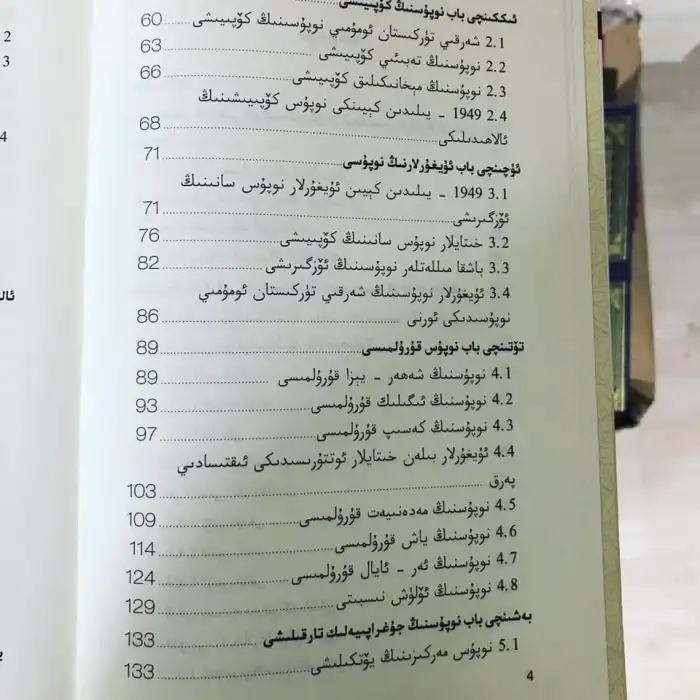 ئىككىنچى باب نوپۇسنىڭ كۆپىيىشى
2.1 شەرقىي تۈركىستان ئومۇمىي نوپۇسىنىڭ كۆپىيىشى ............ 60
2.2 نوپۇسنىڭ تەبىئىي كۆپىيىشى ............ 63
2.3 نوپۇسنىڭ مېخانىكىلىق كۆپىيىشى ............ 66
2.4 1949 - يىلىدىن كېيىنكى نوپۇس كۆپىيىشىنىڭ
ئالاھىدىلىكى ............ 68
ئۈچىنچى باب ئۇيغۇرلارنىڭ نوپۇسى ............ 71
3.1 1949 - يىلىدىن كېيىن ئۇيغۇرلار نوپۇس سانىنىڭ
ئۆزگىرىشى ............ 71
3.2 خىتايلار نوپۇس سانىنىڭ كۆپىيىشى ............ 76
3.3 باشقا مىللەتلەر نوپۇسىنىڭ ئۆزگىرىشى ............ 82
3.4 ئۇيغۇرلار نوپۇسىنىڭ شەرقىي تۈركىستان ئومۇمىي
نوپۇسىدىكى ئورنى ............ 86
تۆتىنچى باب نوپۇس قۇرۇلمىسى ............ 89
4.1 نوپۇسنىڭ شەھەر - يېزا قۇرۇلمىسى ............ 89
4.2 نوپۇسنىڭ ئىگىلىك قۇرۇلمىسى ............ 93
4.3 نوپۇسنىڭ كەسىپ قۇرۇلمىسى ............ 97
4.4 ئۇيغۇرلار بىلەن خىتايلار ئوتتۇرىسىدىكى ئىقتىسادىي
پەرق ............ 103
4.5 نوپۇسنىڭ مەدەنىيەت قۇرۇلمىسى ............ 109
4.6 نوپۇسنىڭ ياش قۇرۇلمىسى ............ 114
4.7 نوپۇسنىڭ ئەر - ئايال قۇرۇلمىسى ............ 124
4.8 نوپۇسنىڭ ئۆلۈش نىسبىتى ............ 129
بەشىنچى باب نوپۇسنىڭ جۇغراپىيەلىك تارقىلىشى ............ 133
5.1 نوپۇس مەركىزىنىڭ يۆتكىلىشى ............ 133
4
2
3
4